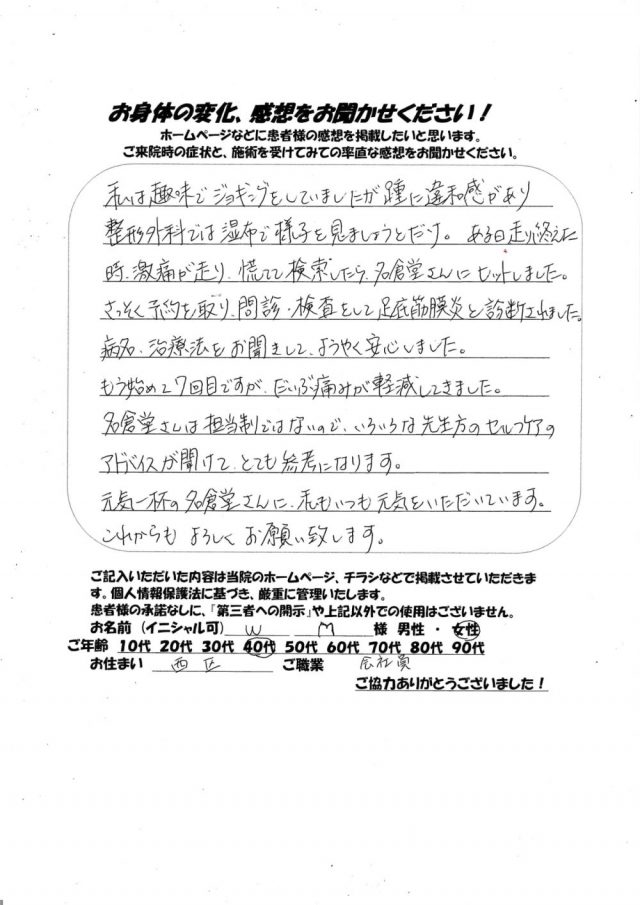 お身体の変化、感想をお聞かせください！
ホームページなどに患者様の感想を掲載したいと思います。
ご来院時の症状と、施術を受けてみての率直な感想をお聞かせください。
私は趣味でジョギングをしていましたが踵に違和感があり
整形外科では湿布で様子を見ましょうとだけ。 ある日走り終えた
時、激痛が走り、慌てて検索したら、名倉堂さんにヒットしました。
さっそく予約を取り、問診・検査をして足底筋膜炎と診断されました。
病名、治療法をお聞きして、ようやく安心しました。
もう始めて7回目ですが、だいぶ痛みが軽減してきました。
名倉堂さんは担当制ではないので、いろいろな先生方のセルフケアの
アドバイスが聞けて、とても参考になります。
元気一杯の名倉堂さんに、私もいつも元気をいただいています。
これからもよろしくお願い致します。
ご記入いただいた内容は当院のホームページ、チラシなどで掲載させていただきま
す。個人情報保護法に基づき、厳重に管理いたします。
患者様の承諾なしに、「第三者への開示」や上記以外での使用はございません。
お名前（イニシャル可） W M 様 男性 ・ 女性
ご年齢 10代 20代 30代 40代 50代 60代 70代 80代 90代
お住まい 西区 ご職業 会社員
ご協力ありがとうございました！